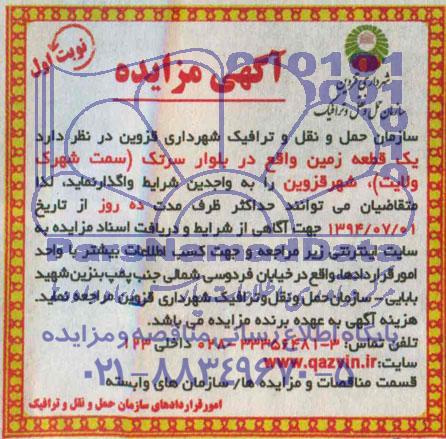 نوبت اول
آگهی مزایده
شهرداری قزوین
سازمان حمل و نقل و ترافیک
سازمان حمل و نقل و ترافیک شهرداری قزوین در نظر دارد
یک قطعه زمین واقع در بلوار سرتک (سمت شهرک
ولایت)، شهر قزوین را به واجدین شرایط واگذار نماید، لذا
متقاضیان می توانند حداکثر ظرف مدت ده روز از تاریخ
۱۳۹۴/۰۷/۰۱ جهت آگاهی از شرایط و دریافت اسناد مزایده به
سایت اینترنتی زیر مراجعه و جهت کسب اطلاعات بیشتر با واحد
امور قراردادها، واقع در خیابان فردوسی شمالی جنب پمپ بنزین شهید
بابایی - سازمان حمل و نقل و ترافیک شهرداری قزوین مراجعه نمایند.
هزینه آگهی به عهده برنده مزایده می باشد.
تلفن تماس: ۳-۳۳۳۵۶۴۸۱-۰۲۸ داخلی ۲۳
سایت: www.qazvin.ir
قسمت مناقصات و مزایده ها/ سازمان های وابسته
امور قراردادهای سازمان حمل و نقل و ترافیک
پایگاه اطلاع رسانی مناقصه و مزایده
۰۲۱-۸۸۳۴۹۶۷۰-۵